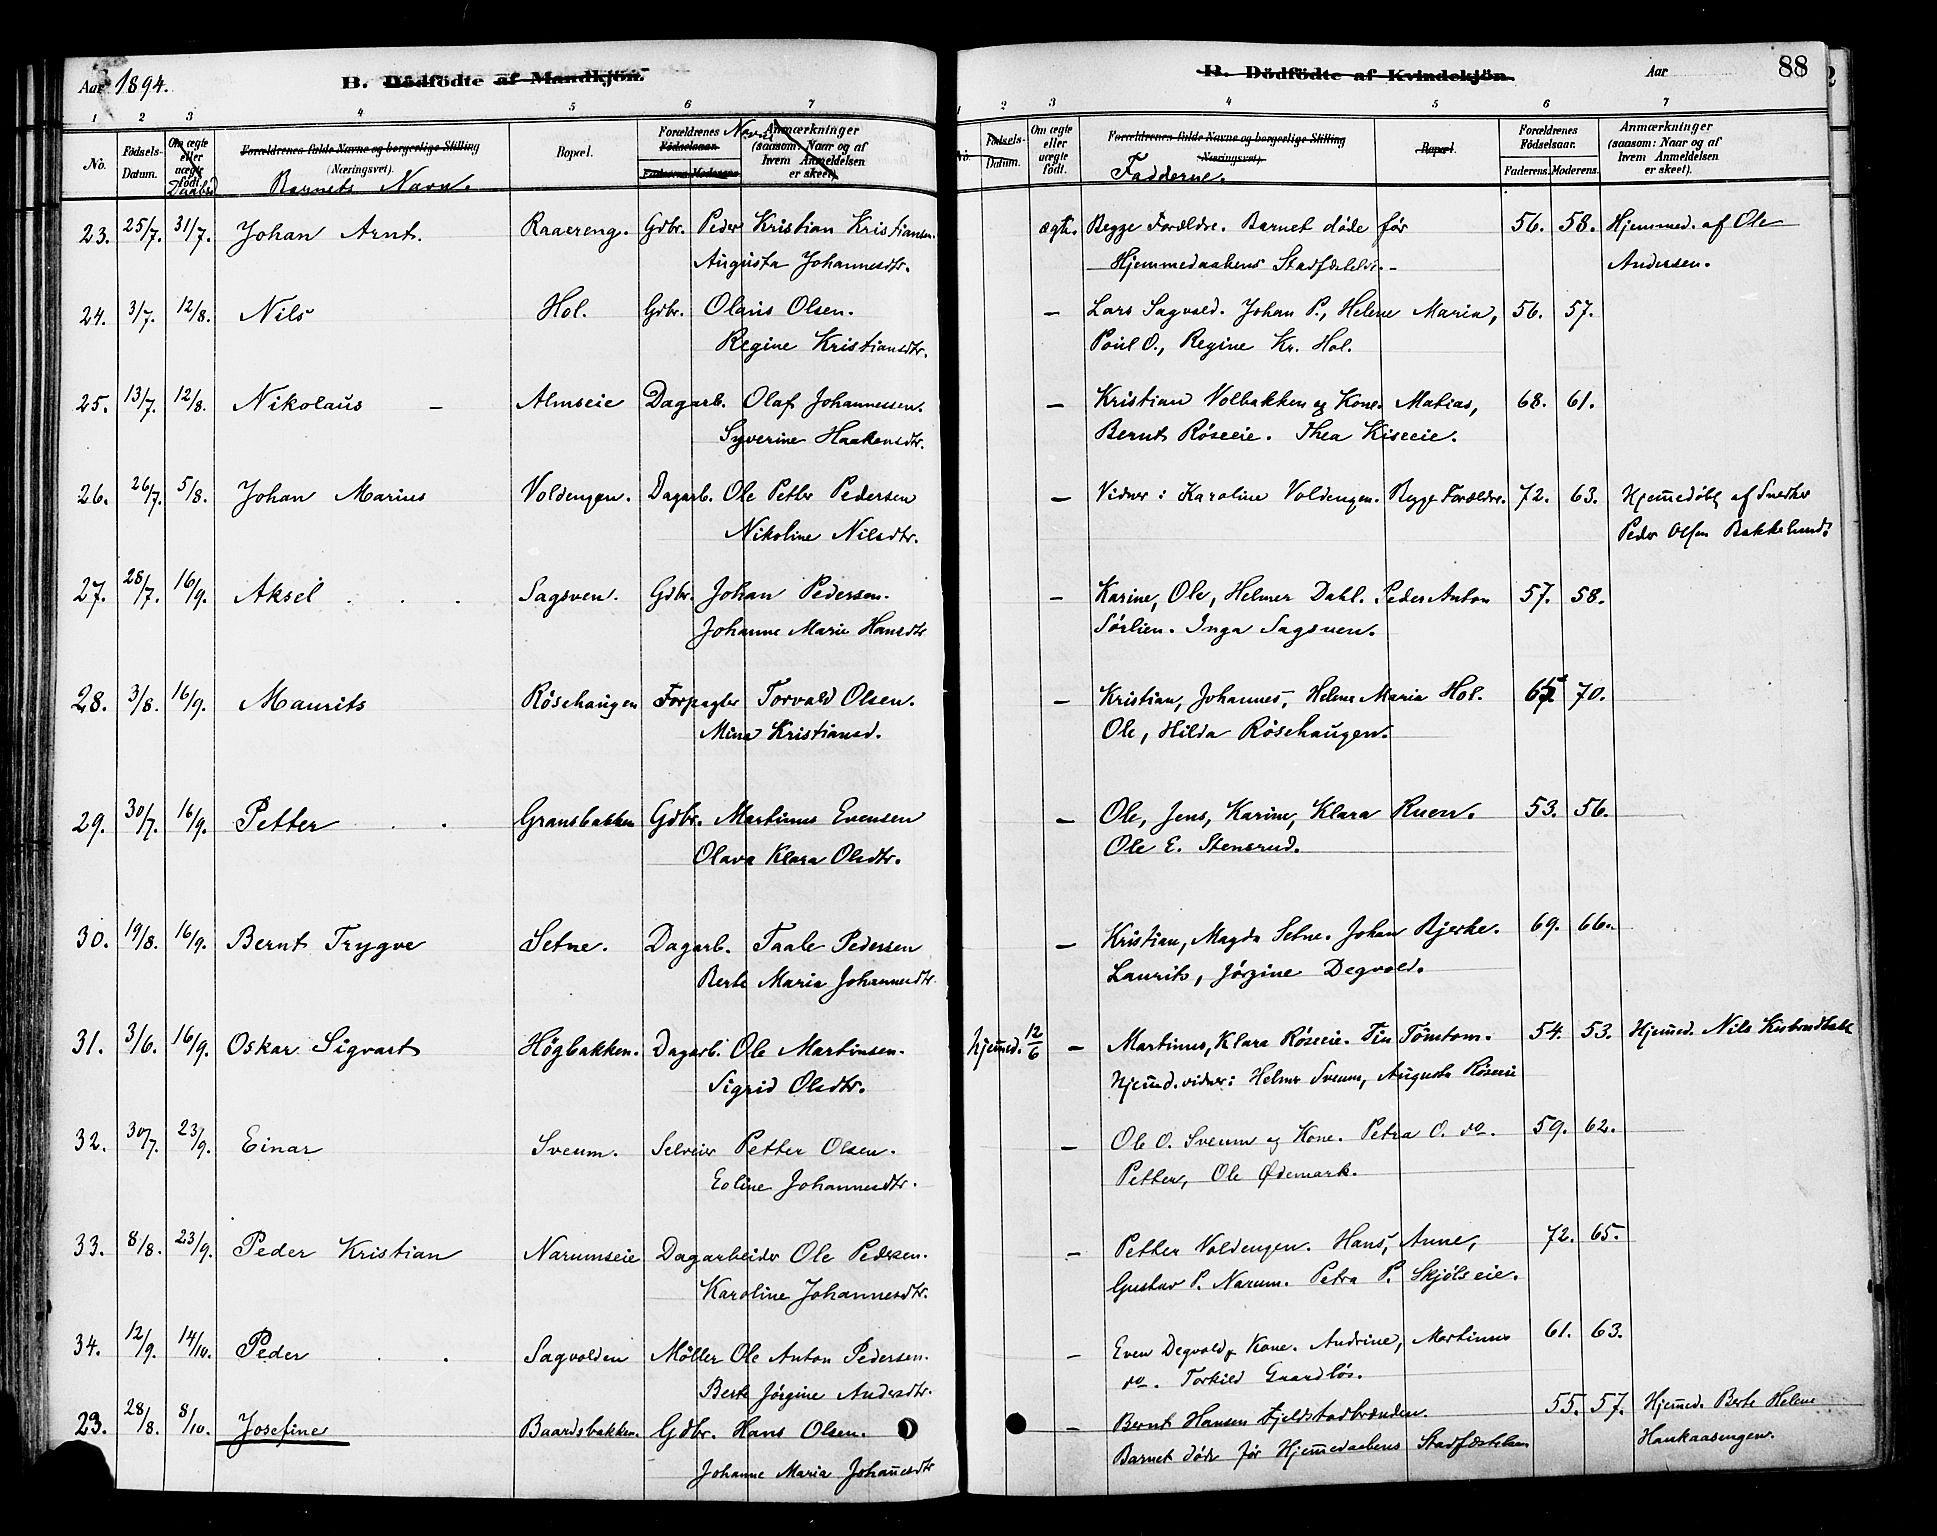 Aar 1894.
B. Dödfödte af Mandkjön.
1 2 3 4 5 6 7
No. Födsels-Datum. Om ægte eller uægte født. Daabsd. Forældrenes fulde Navne og borgerlige Stilling (Næringsvei). Barnets Navn. Bopæl. Forældrenes Födselsaar. Navne Faderens. Moderens. Anmærkninger (saasom: Naar og af hvem Anmeldelsen er skeet).
23. 25/7. 31/7. Johan Arnt. Raaereng. Gdbr. Peder Kristian Kristiansen.
Augusta Johannesdtr.
24. 3/7. 12/8. Nils Hol. Gdbr. Olaus Olsen.
Regine Kristiansdtr.
25. 13/7. 12/8. Nikolaus – Almseie Dagarb. Olaf Johannessen.
Syverine Haakensdtr.
26. 26/7. 5/8. Johan Marius Voldengen. Dagarb. Ole Petter Pedersen
Nikoline Nilsdtr.
27. 28/7. 16/9. Aksel Sagsven. Gdbr. Johan Pedersen.
Johanne Marie Hansdtr
28. 3/8. 16/9. Maurits Røsehaugen Forpagter Torvald Olsen.
Mina Kristiansd.
29. 30/7. 16/9. Petter Gransbakken Gdbr. Martinus Evensen
Olava Klara Olsdtr.
30. 19/8. 16/9. Bernt Trygve Setne. Dagarb. Taale Pedersen
Berte Maria Johannesdtr.
31. 3/6. 16/9. Oskar Sigvart Høgbakken. Dagarb. Ole Martinsen.
Sigrid Olsdtr.
32. 30/7. 23/9. Einar Sveum. Selveier Petter Olsen.
Eoline Johannesdtr.
33. 8/8. 23/9. Peder Kristian Narumseie Dagarbeider Ole Pedersen.
Karoline Johannesdtr.
34. 12/9. 14/10. Peder Sagvolden Møller Ole Anton Pedersen.
Berte Jørgine Andersdtr.
23. 28/8. 8/10. Josefine Baardsbakken. Gdbr. Hans Olsen.
Johanne Maria Johanesdtr
B. Dödfödte af Kvindekjön. Aar 88
1 2 3 4 5 6 7
No. Födsels-Datum. Om ægte eller uægte födt. Forældrenes fulde Navne og borgerlige Stilling (Næringsvei). Fadderne. Bopæl. Forældrenes Födselsaar. Faderens. Moderens. Anmærkninger (saasom: Naar og af hvem Anmeldelsen er skeet).
ægte. Begge Forældre. Barnet døde før 56. 58. Hjemmed. af Ole
Hjemmedaabens Stadfæstelse. – Andersen.
– Lars Sagvold. Johan P., Helene Maria, 56. 57.
Poul O., Regine Kr. Hol.
– Kristian Volbakken og Kone. Matias, 68. 61.
Bernt Røseeie. Thea Kiseeie.
– Vidner: Karoline Voldengen. Begge Forældre. 72. 63. Hjemmedøbt af Snedker
Peder Olsen Bakkelund.
– Karine, Ole, Helmer Dahl. Peder Anton 57. 58.
Sørlien. Inga Sagsven.
– Kristian, Johannes, Helene Maria Hol. 70.
Ole, Hilda Røsehaugen.
– Ole, Jens, Karine, Klara Ruen. 53. 56.
Ole E. Stensrud.
– Kristian, Magda Setne. Johan Bjerke. 69. 66.
Laurits, Jørgine Degvold.
hjemmed. 12/6 – Martinus, Klara Røseeie. Tømtom. 54. 53. Hjemmed. Nils
Hjemmed. vidner: Helmer Sveum, Augusta Røseeie
– Ole O. Sveum og Kone. Petra O. do. 59. 62.
Petter, Ole Ødemark.
– Petter Voldengen. Hans, Anne, 72. 65.
Gustav P. Narum. Petra P. Skjølseie.
– Even Degvold og Kone. Andrine, Martinus 61. 63.
do. Torkild Gaardløs.
– Bernt Hansen Fjeldstadbrænden. 55. 57. Hjemmed. Berte Helene
Barnet døde før Hjemmedaabens Stadfæstelsen Haukaasengen.